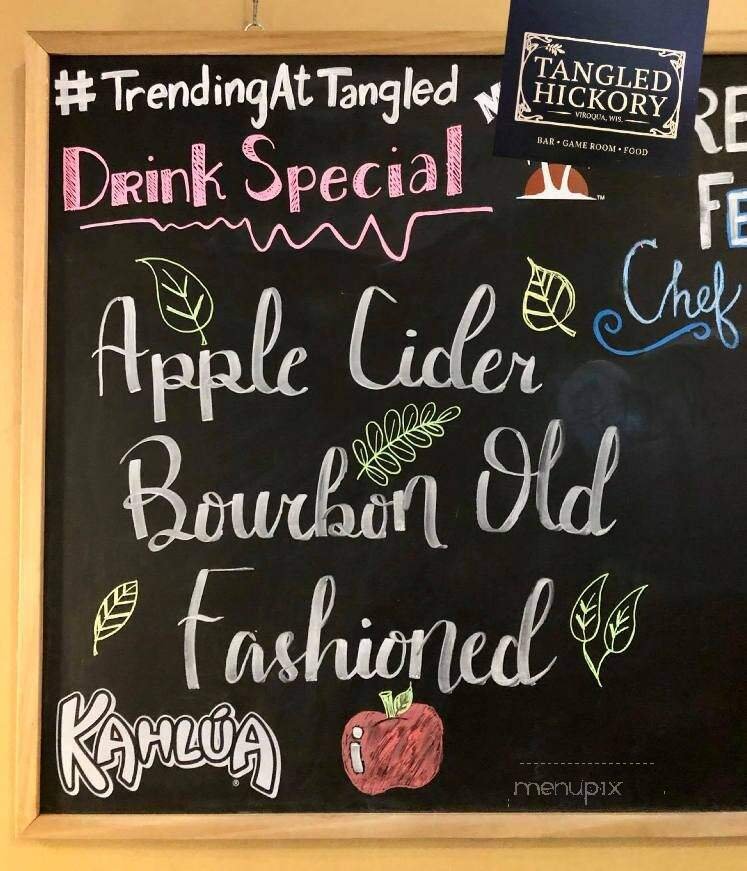 #TrendingAtTangled
TANGLED
HICKORY
VIROQUA, WIS.
BAR • GAME ROOM • FOOD
RE
FE
Drink Special
Chef
Apple Cider
Bourbon Old
Fashioned
KAHLÚA
menupix